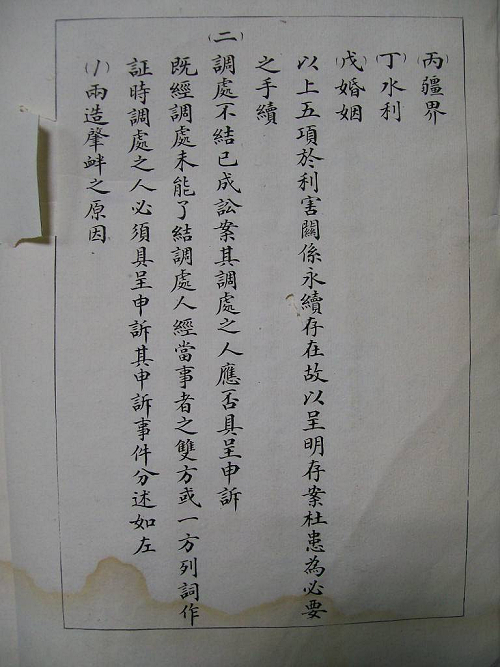 (丙)疆界
(丁)水利
(戊)婚姻
以上五項於利害關係永續存在故以呈明存案杜患為必要
之手續
(二)調處不結已成訟案其調處之人應否具呈申訴
既經調處未能了結調處人經當事者之雙方或一方列詞作
証時調處之人必須具呈申訴其申訴事件分述如左
(1)兩造肇衅之原因